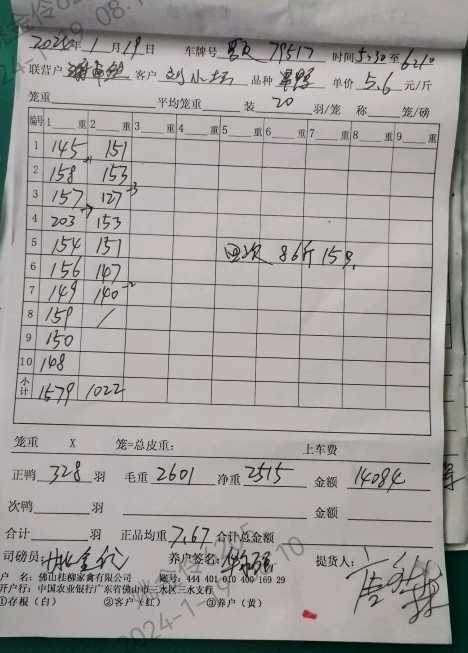 2024年1月19日 车牌号 粤 79517 时间5:30至6:10
联营户 客户 刘小 品种 单价 5.6 元/斤
笼重 平均笼重 装 20 羽/笼 称 笼/磅
编号 1 重 2 重 3 重 4 重 5 重 6 重 7 重 8 重 9 重
1 145 151
2 158 153
3 157 127 -3
4 203 153
5 154 151 回次 86斤 15只
6 156 147
7 149 140 -2
8 159 /
9 150
10 148
小计 1579 1022
笼重 X 笼=总皮重: 上车费
正鸭 328 羽 毛重 2601 净重 2515 金额 14084
次鸭 羽 金额
合计 羽 正品均重 7.67 合计总金额
司磅员: 养户签名: 提货人:
户 名: 佛山桂柳家禽有限公司 账号: 444 401 010 400 169 29
开户行: 中国农业银行广东省佛山市三水区三水支行
①存根(白) ②客户(红) ③养户(黄)